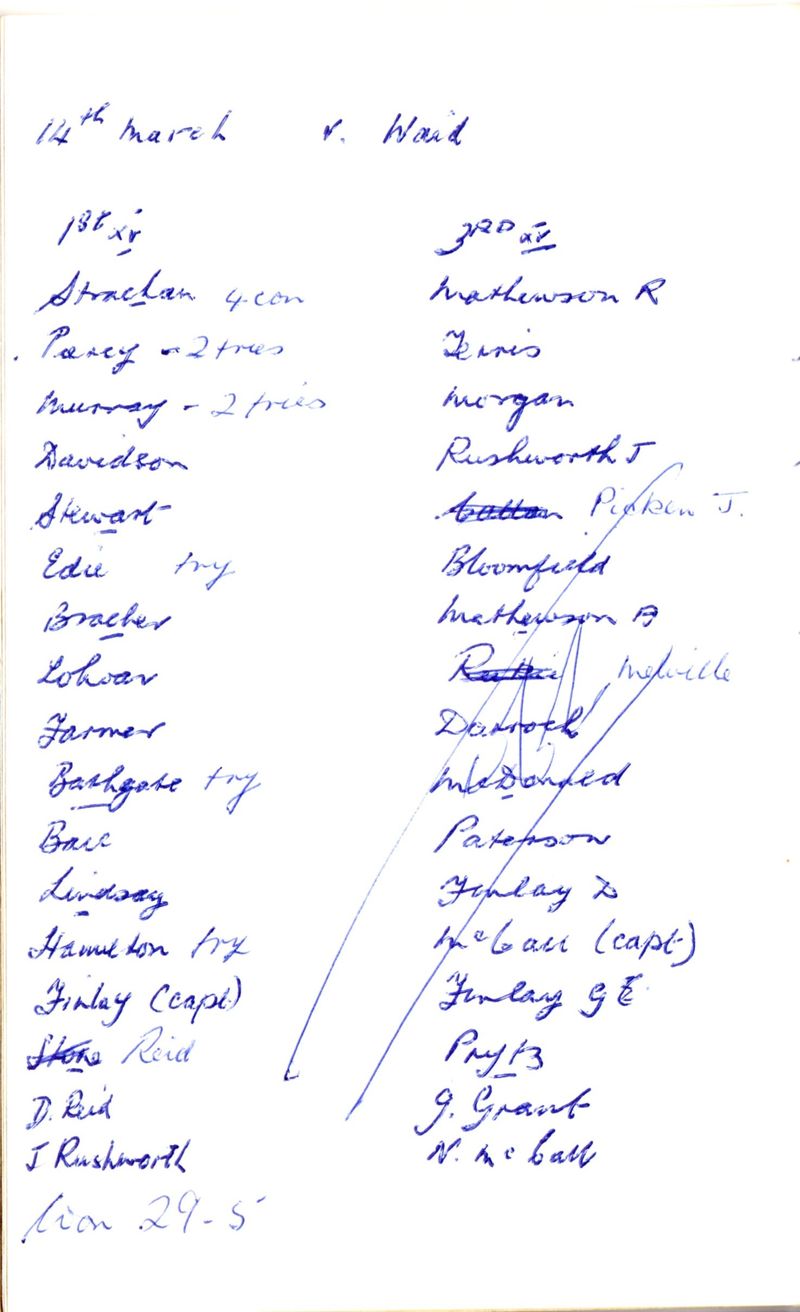 14th March v. Waid
1st XV
Strachan 4 con
Parcy - 2 tries
Murray - 2 tries
Davidson
Stewart
Edie try
Bracher
Lohoar
Farmer
Bathgate try
Lindsay
Hamilton try
Finlay (capt)
Stone Reid
D. Reid
J Rushworth
29-5
3RD XV
Mathewson R
Ferris
Morgan
Rushworth J
Picken J.
Bloomfield
Mathewson A
Melville
Darroch
McDonald
Paterson
Finlay D
McCall (capt)
Finlay G E
Prytz
G. Grant
N. McCall